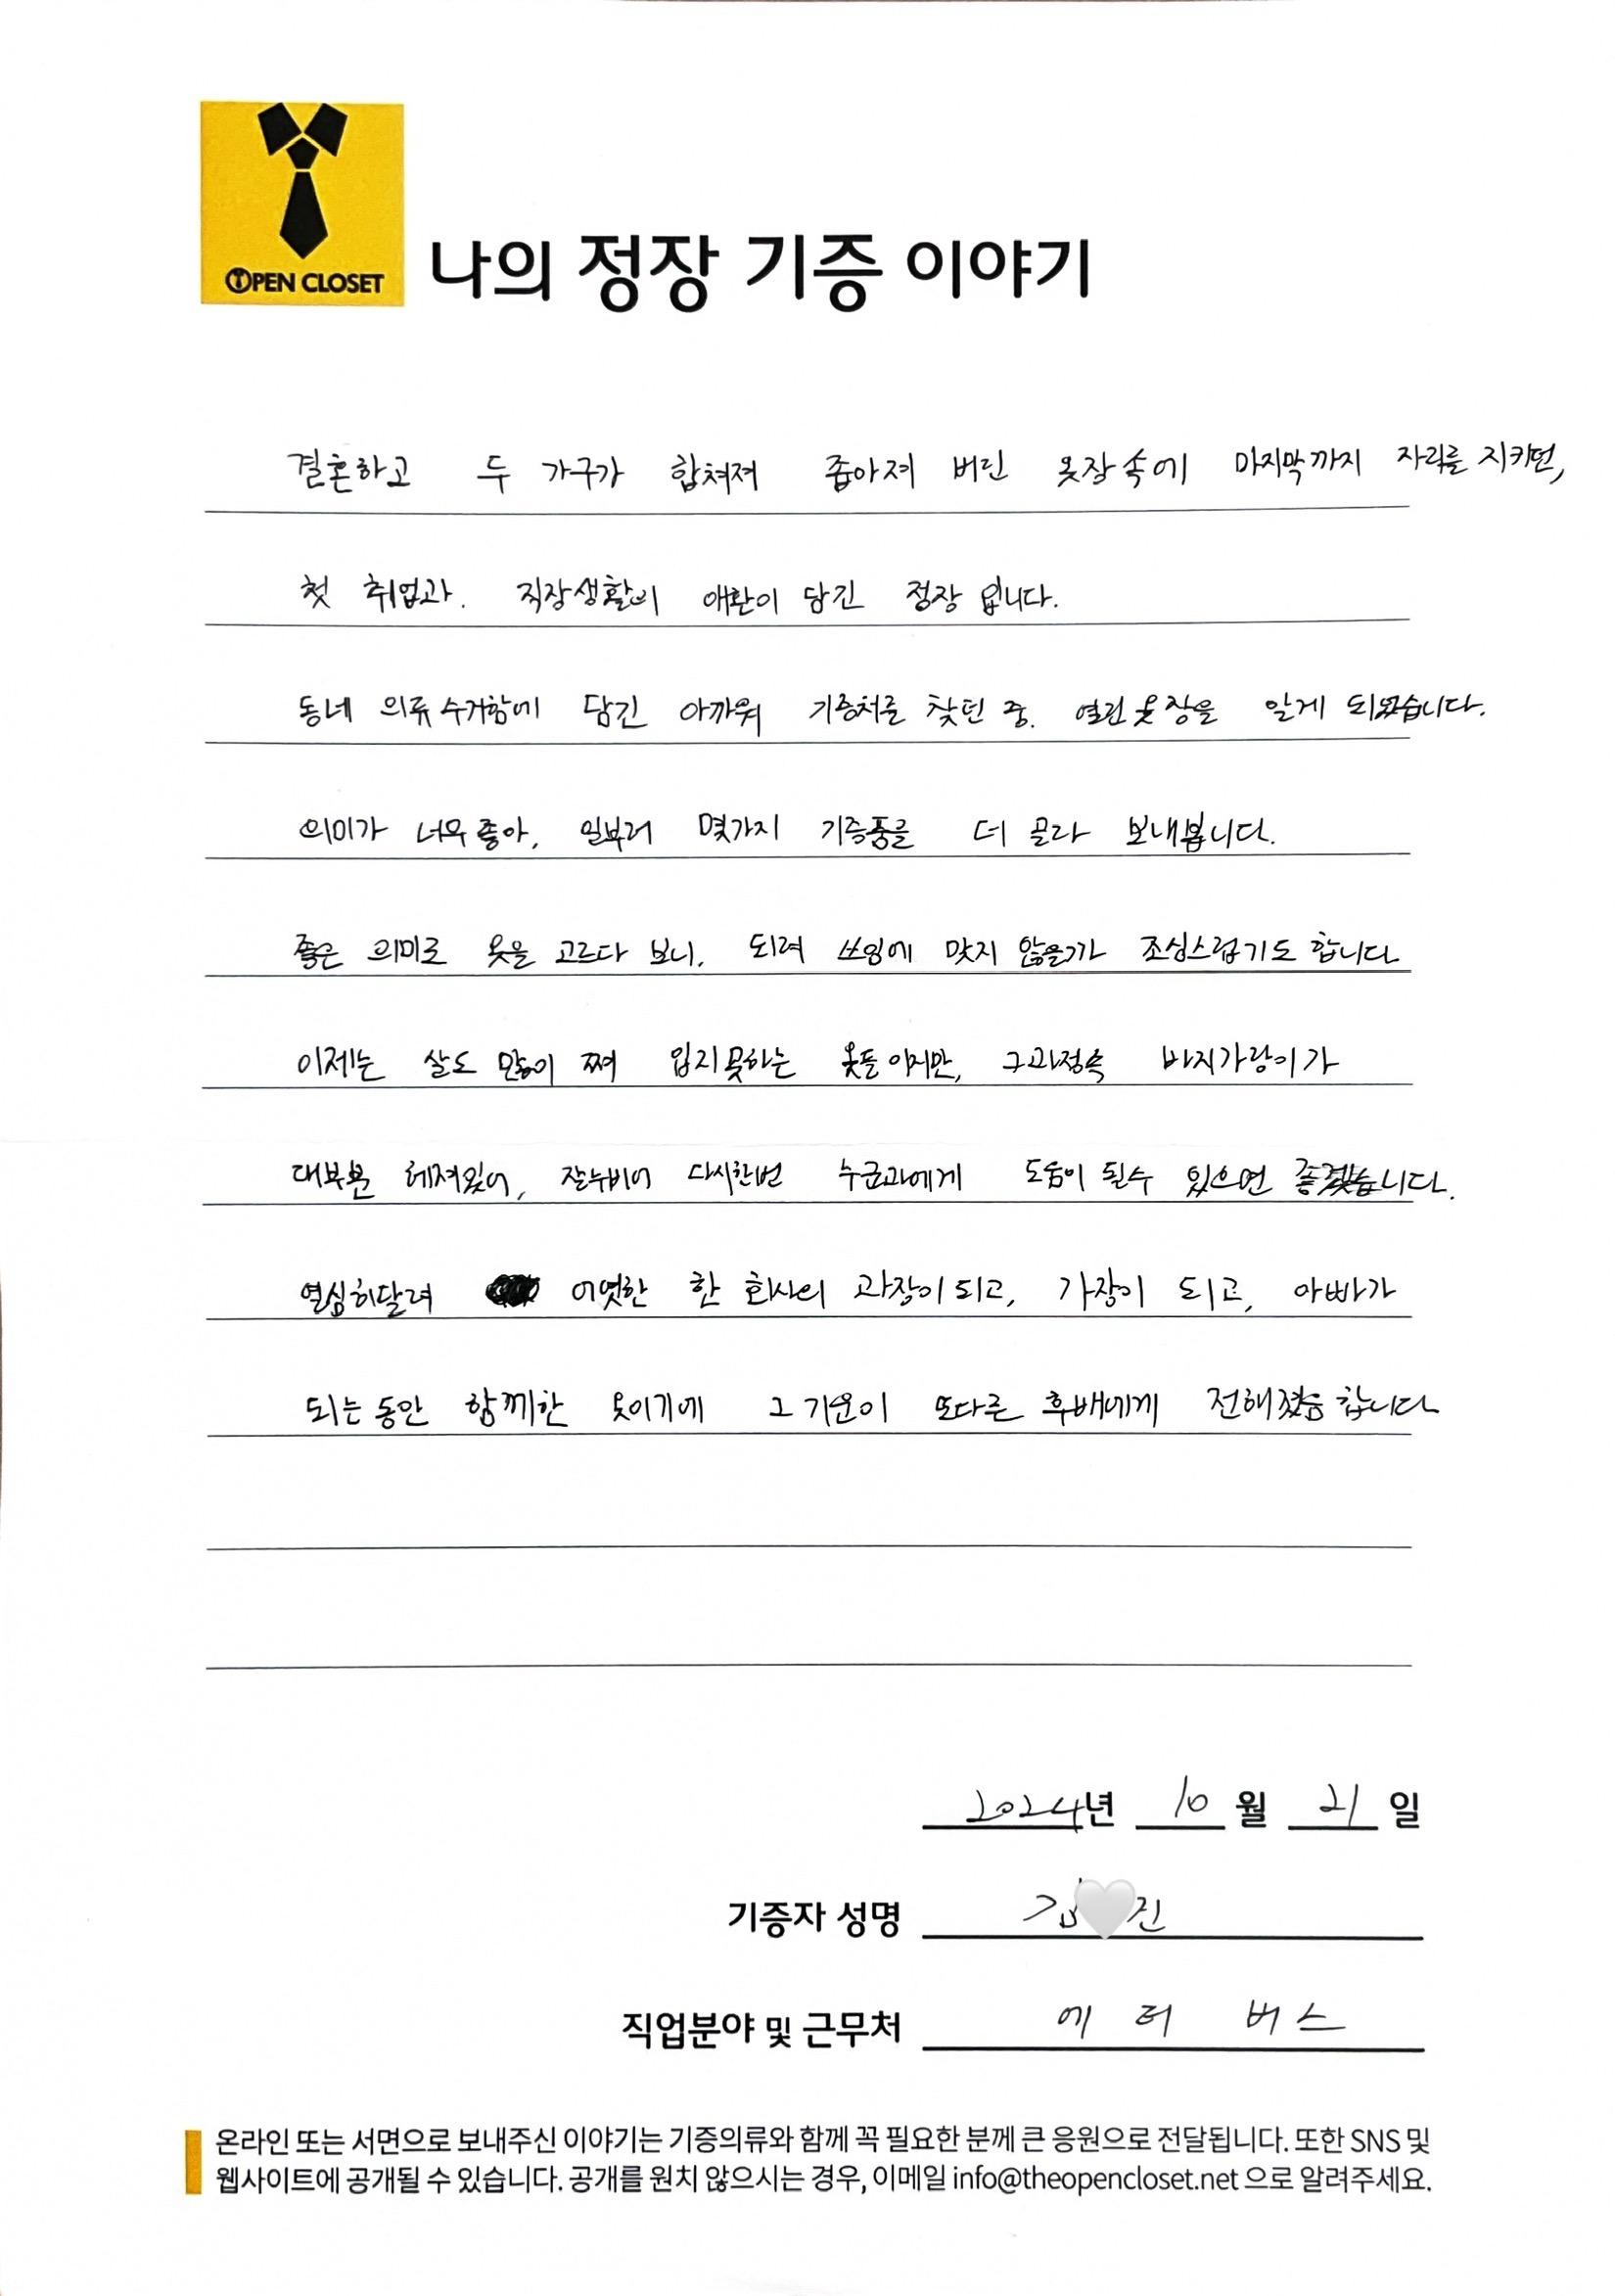 OPEN CLOSET
나의 정장 기증 이야기
결혼하고 두 가구가 합쳐져 좁아져 버린 옷장 속에 마지막까지 자리를 지키던,
첫 취업과. 직장생활의 애환이 담긴 정장 입니다.
동네 의류 수거함에 담긴 아까워 기증처를 찾던 중. 열린 옷장을 알게 되었습니다.
의미가 너무 좋아, 일부러 몇가지 기증품을 더 골라 보내봅니다.
좋은 의미로 옷을 고르다 보니, 되려 쓰임에 맞지 않을가 조심스럽기도 합니다
이제는 살도 많이 쪄 입지 못하는 옷들 이지만, 그과정속 바지가랑이가
대부분 헤져있어, 잘누비어 다시한번 누군과에게 도움이 될수 있으면 좋겠습니다.
열심히달려 어엿한 한 회사의 과장이 되고, 가장이 되고, 아빠가
되는 동안 함께한 옷이기에 그 기운이 또다른 후배에게 전해졌음 합니다
2024년 10월 21일
기증자 성명 김 진
직업분야 및 근무처 에 터 버스
온라인 또는 서면으로 보내주신 이야기는 기증의류와 함께 꼭 필요한 분께 큰 응원으로 전달됩니다. 또한 SNS 및
웹사이트에 공개될 수 있습니다. 공개를 원치 않으시는 경우, 이메일 info@theopencloset.net 으로 알려주세요.